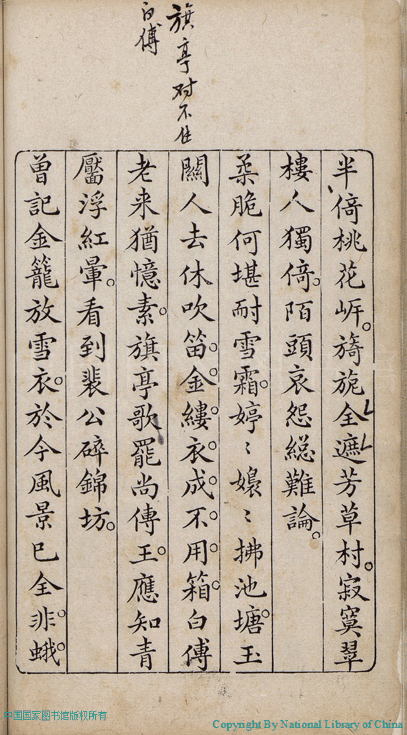 旗亭对不住
白傅
半倚桃花㟁旖旎全遮芳草村寂寞翠
樓人獨倚陌頭哀怨緫難論
柔脆何堪耐雪霜婷〻嬝〻拂池塘玉
關人去休吹笛金縷衣成不用箱白傅
老来猶憶素旗亭歌罷尚傳王應知青
靨浮紅暈看到裴公碎錦坊
曽記金籠放雪衣於今風景已全非蛾
中国国家图书馆版权所有
Copyright By National Library of China